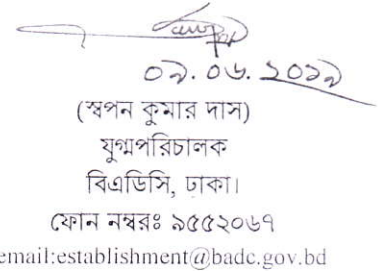 ০৯. ০৬. ২০১৯
(স্বপন কুমার দাস)
যুগ্মপরিচালক
বিএডিসি, ঢাকা।
ফোন নম্বরঃ ৯৫৫২০৬৭
email:establishment@badc.gov.bd